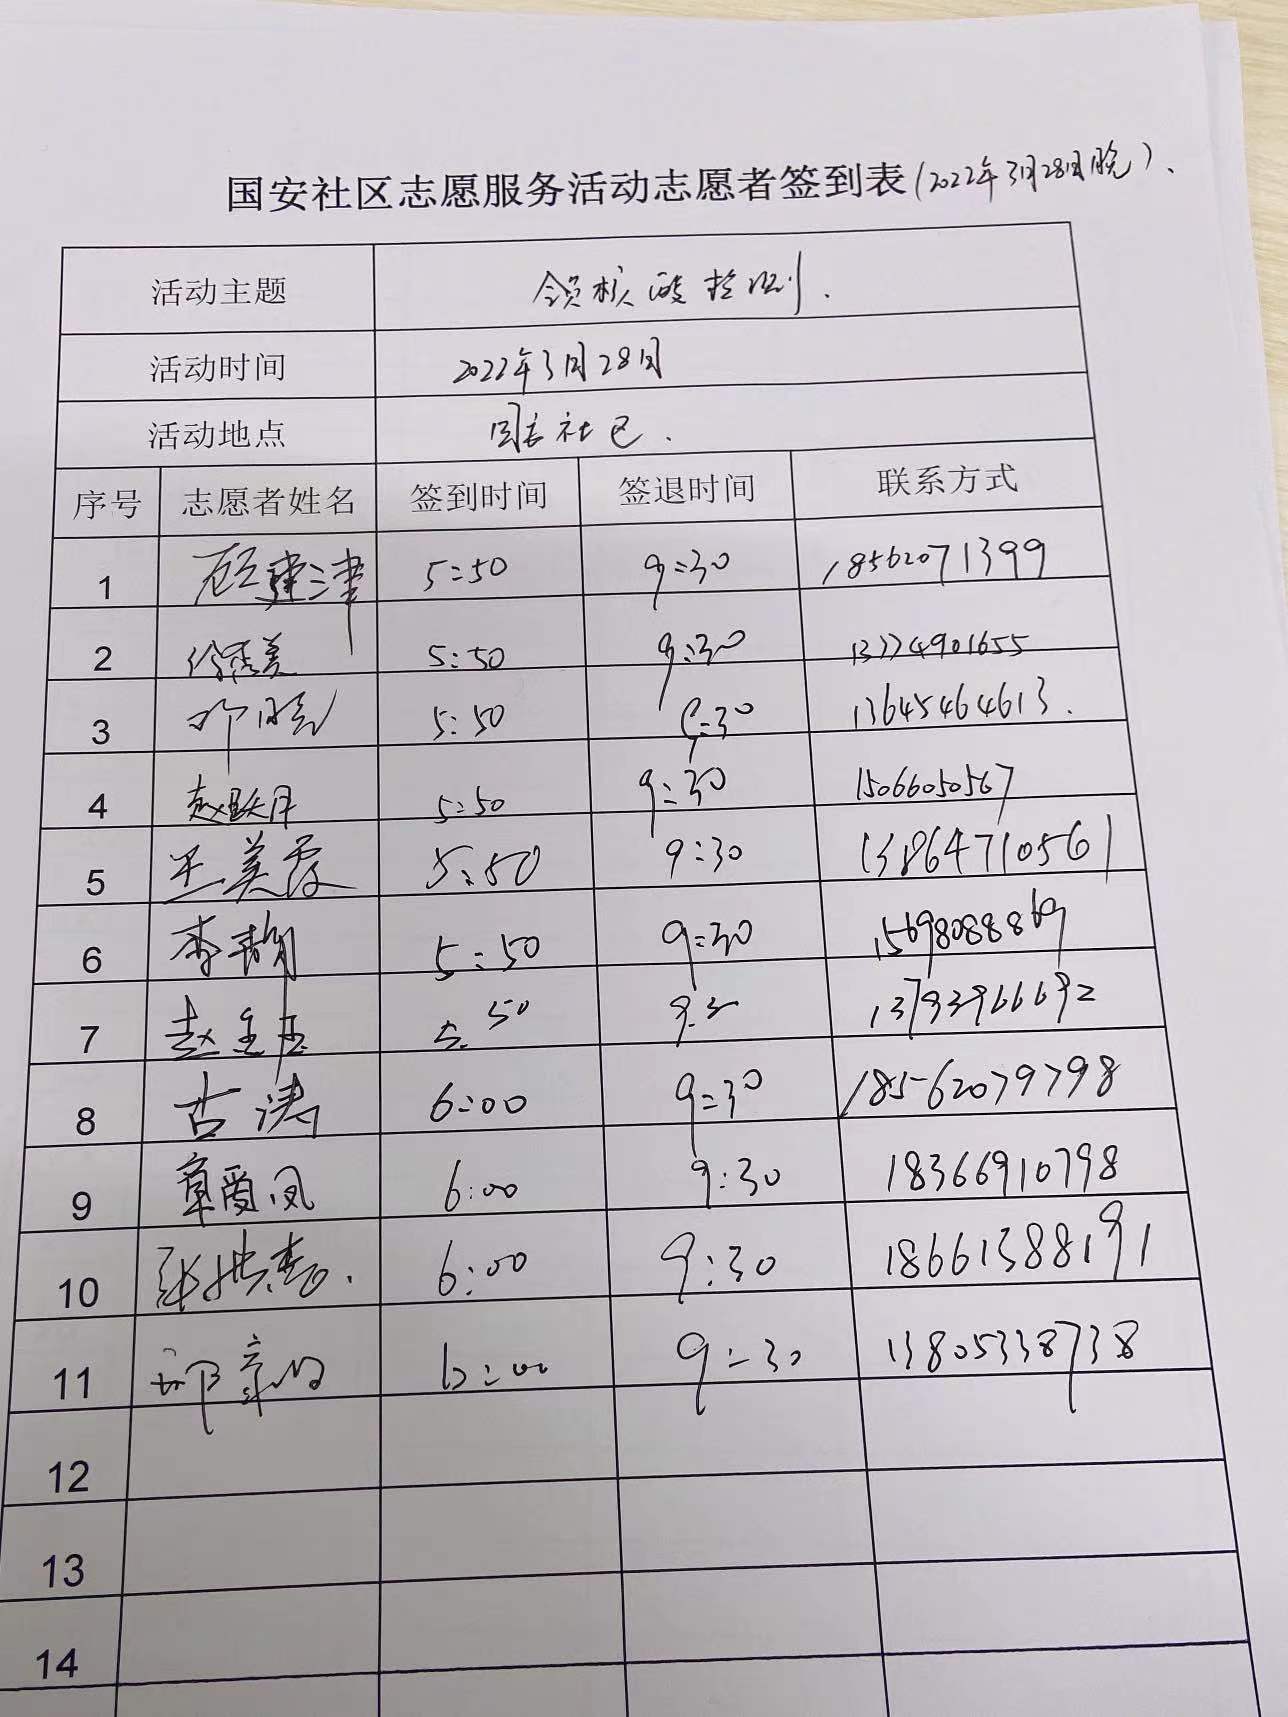 国安社区志愿服务活动志愿者签到表(2022年3月28日晚)、
活动主题 全员核酸检测.
活动时间 2022年3月28日
活动地点 国安社区.
序号 志愿者姓名 签到时间 签退时间 联系方式
1 顾建津 5:50 9:30 18562071399
2 徐秀美 5:50 9:30 13774901655
3 5:50 9:30 13645464613.
4 赵跃月 5:50 9:30 15066050567
5 王美霞 5:50 9:30 13864710561
6 李静 5:50 9:30 15698088869
7 赵玉 5:50 13793966692
8 古涛 6:00 9:30 18562079798
9 章爱凤 6:00 9:30 18366910798
10 6:00 9:30 18661388191
11 6:00 9:30 13805338738
12
13
14